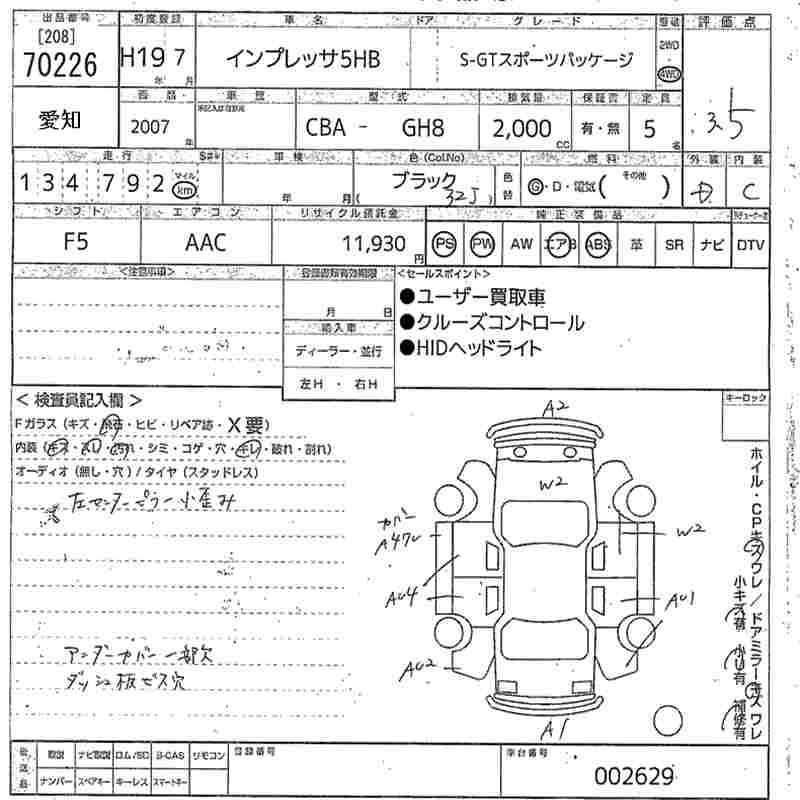 出品番号 初度登録 車名 ドア グレード 駆動 評価点
[208]
70226 H19 7 インプレッサ5HB S-GTスポーツパッケージ 2WD 4WD
年 月
3.5
愛知 西暦 車歴 型式 排気量 保証書 定員
2007 年 CBA - GH8 2,000 CC 有・無 5 名
走行 車検 色(Col.No) 燃料 外装 内装
134,792 マイル km 年 月 ブラック 32J 色替 G・D・電気( その他 ) D C
シフト エアコン リサイクル預託金 純正装備品
F5 AAC 11,930 円 PS PW AW エアB ABS 革 SR ナビ DTV
<注意事項> 登録書類有効期限 <セールスポイント>
月 日 ●ユーザー買取車
輸入車 ●クルーズコントロール
ディーラー・並行 ●HIDヘッドライト
左H ・ 右H
キーロック
< 検査員記入欄 >
Fガラス (キズ・飛石・ヒビ・リペア跡・X要)
内装 (キズ・スレ・汚れ・シミ・コゲ・穴・キレ・破れ・割れ)
オーディオ (無し・穴) / タイヤ (スタッドレス)
左センターピラー小歪み
アンダーカバー一部欠
ダッシュ板ビス穴
A2
W2
カバー
W2
AU4
AU1
AU2
A1
ホイル・CPキズワレ/ドアミラーキズワレ
小キズ有 小U有 補修有
後送品 取説 ナビ取説 ロム/SD B-CAS リモコン 登録番号 車台番号
ナンバー スペアキー キーレス スマートキー 002629